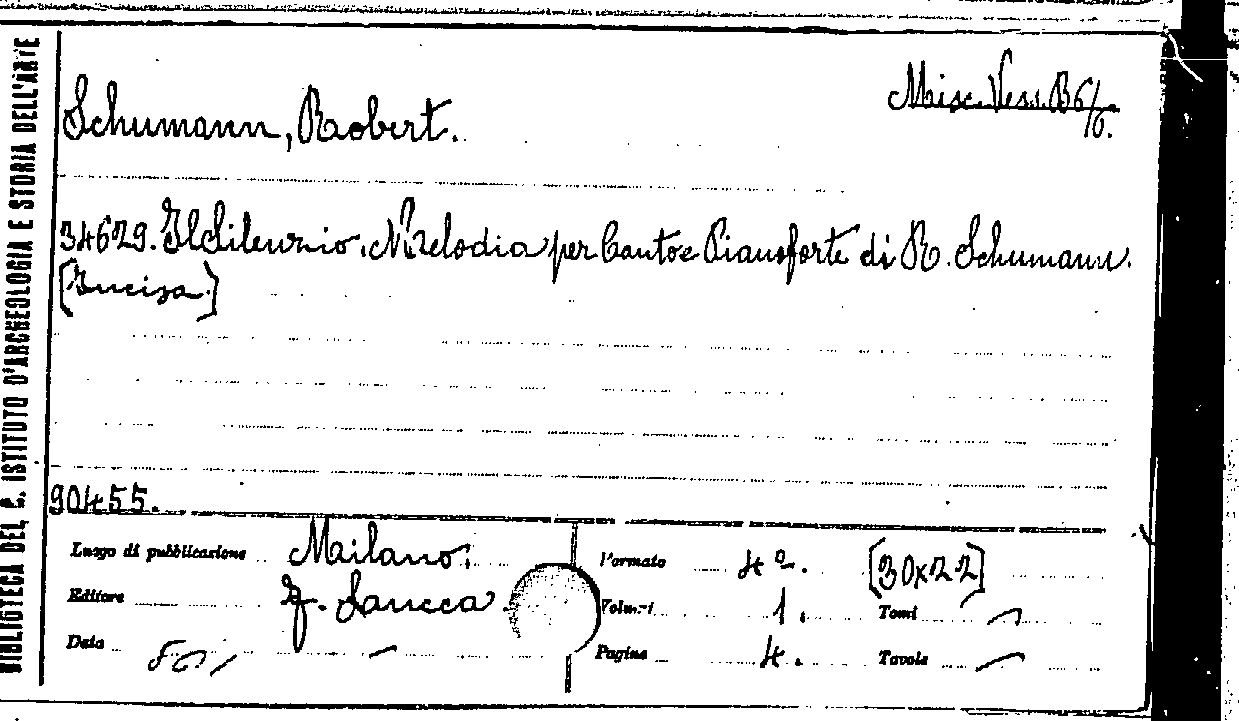 BIBLIOTECA DEL R. ISTITUTO D'ARCHEOLOGIA E STORIA DELL'ARTE
Misc. Vess. B6/6.
Schumann, Robert.
34629. Il Silenzio. Melodia per Canto e Pianoforte di R. Schumann.
[Incisa.]
90455.
Luogo di pubblicazione Milano:
Editore F. Lucca
Data
Formato 4º. [30x22]
Volumi 1. Tomi
Pagine 4. Tavole